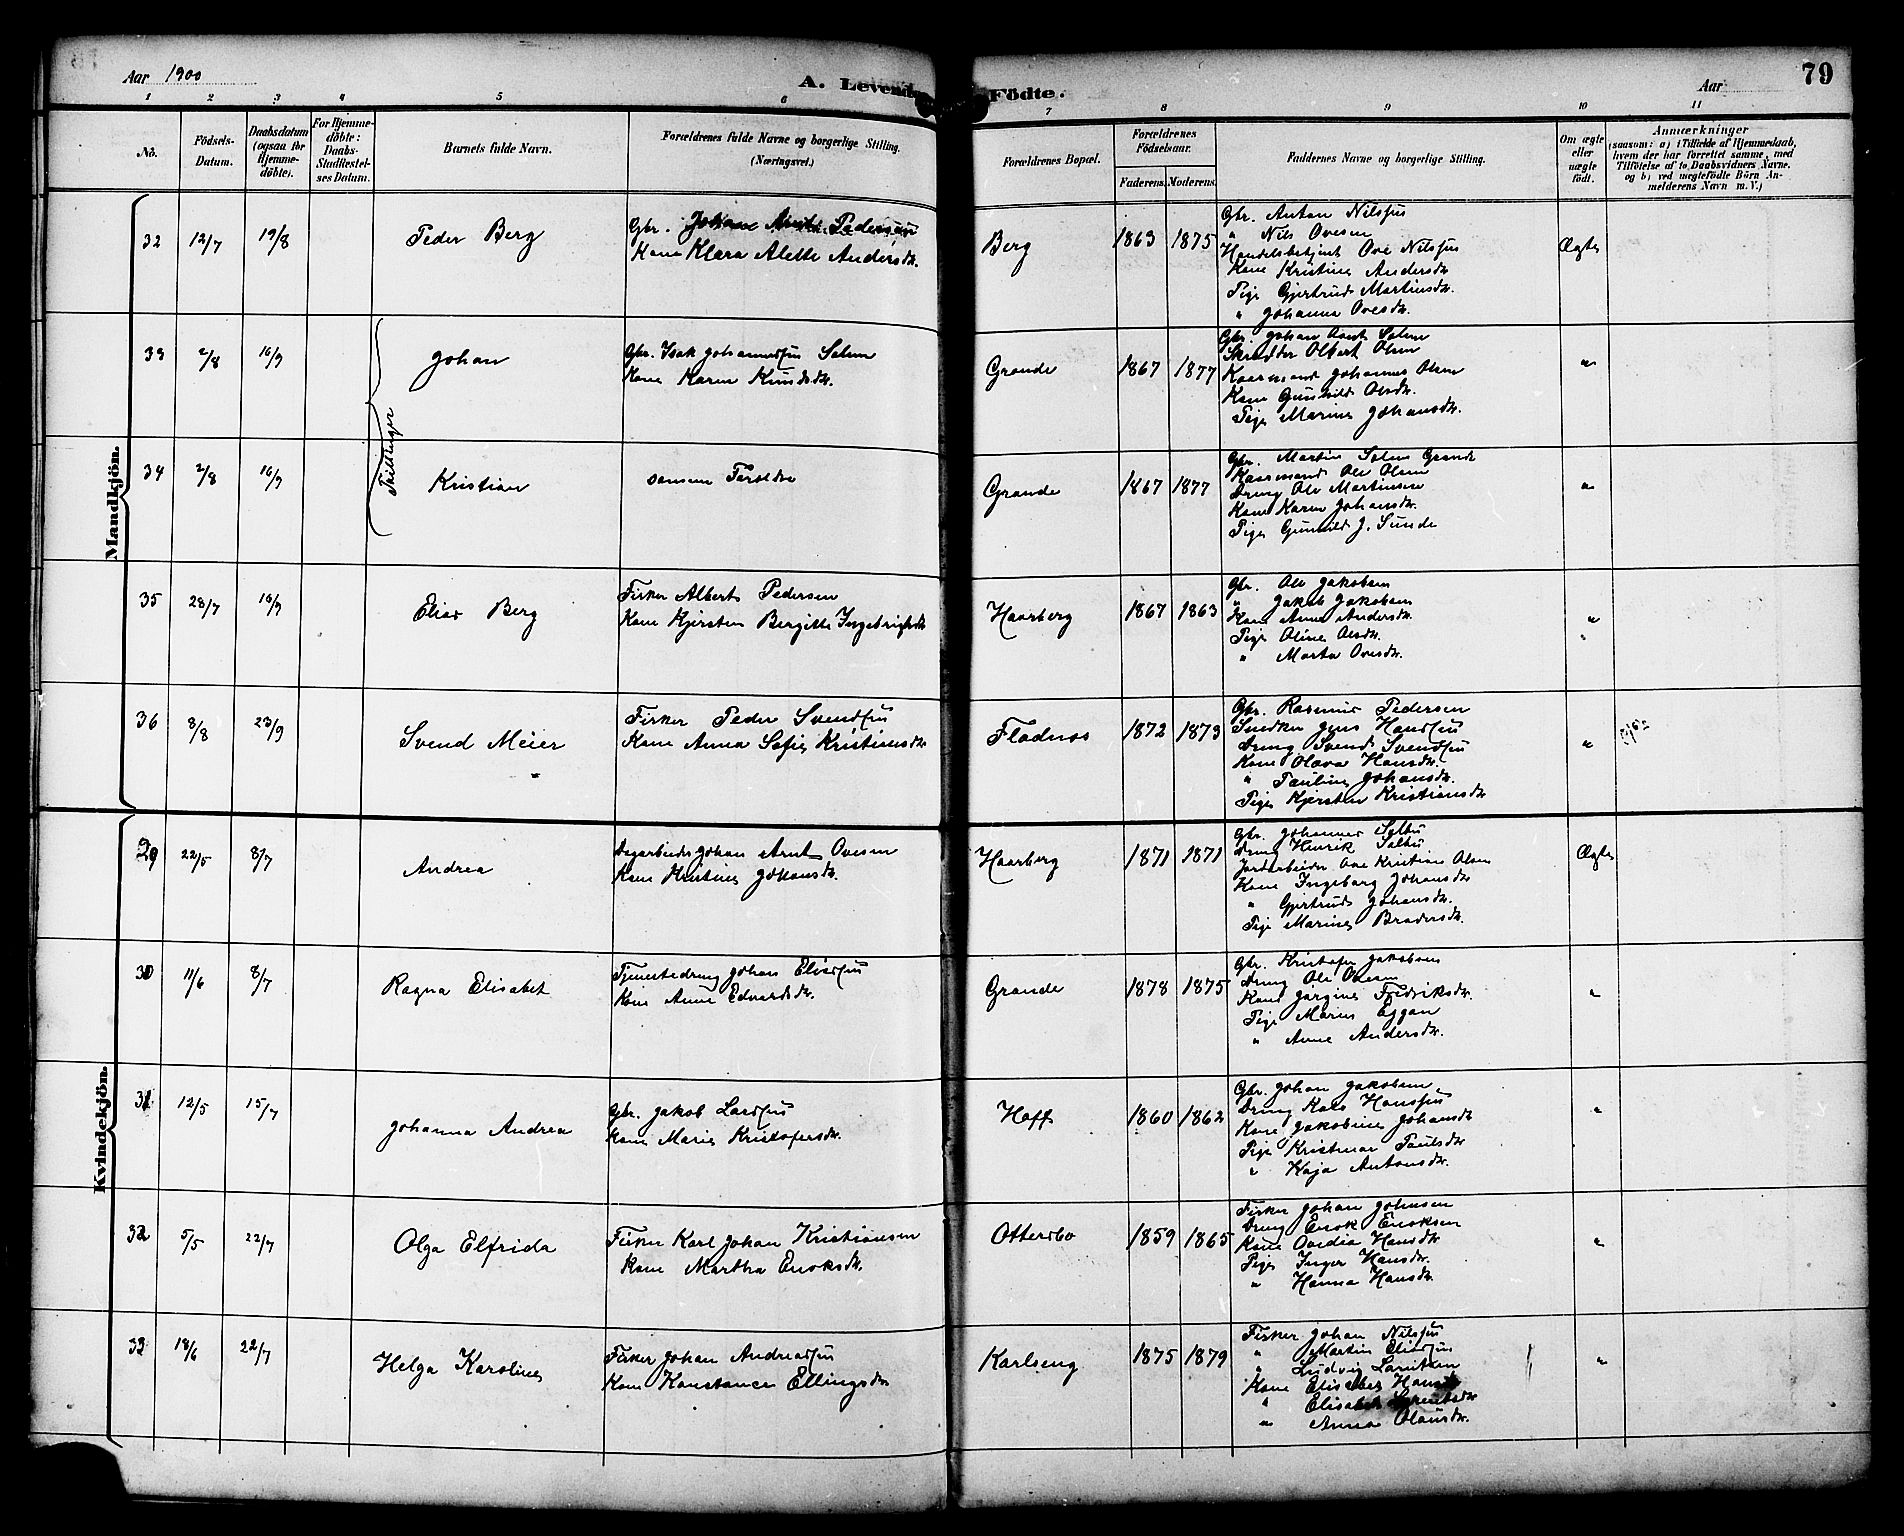 Aar 1900
A. Levende Födte.
Aar
79
1 2 3 4 5 6 7 8 9 10 11
No.
Födsels-Datum.
Daabsdatum (ogsaa for Hjemme-döbte).
For Hjemme-döbte: Daabs-Stadfæstel-ses Datum.
Barnets fulde Navn.
Forældrenes fulde Navne og borgerlige Stilling. (Næringsvei.)
Forældrenes Bopæl.
Forældrenes Födselsaar.
Faderens. Moderens.
Faddernes Navne og borgerlige Stilling.
Om ægte eller uægte födt.
Anmærkninger
(saasom: a) i Tilfælde af Hjemmedaab, hvem der har forrettet samme, med Tilföielse af to Daabsvidners Navne, og b) ved uægtefödte Börn Anmelderens Navn m. V.)
Mandkjön.
32 12/7 19/8 Peder Berg
Gbr. Johan Arnt Pedersen
Kone Klara Alette Andersdr.
Berg 1863 1875
Gbr. Anton Nilssen
" Nils Ovesen
Handelsbetjent Ove Nilssen
Kone Kristine Andersdr.
Pige Gjertrud Martinsdr.
" Johanna Ovesdr.
Ægte
Tvillinger
33 2/8 16/9 Johan
Gbr. Isak Johannessen Solem
Kone Karen Knudsdr.
Grande 1867 1877
Gbr. Johan Arnt Solem
Skrædder Olbert Olsen
Kaarmand Johannes Olsen
Kone Gunhild Olsdr.
Pige Marine Johansdr.
"
34 2/8 16/9 Kristian
samme Forældre
Grande 1867 1877
Gbr. Martin Solem Grande
Kaarmand Ole Olsen
Dreng Ole Martinsen
Kone Karen Johansdr.
Pige Gunhild J. Sunde
"
35 28/7 16/9 Elias Berg
Fisker Albert Pedersen
Kone Kjersten Bergitte Ingebrigtsdr.
Haarberg 1867 1863
Gbr. Ole Jakobsen
" Jakob Jakobsen
Kone Anna Andersdr.
Pige Oline Olsdr.
" Marta Ovesdr.
"
36 8/8 23/9 Svend Meier
Fisker Peder Svendsen
Kone Anna Sofie Kristiansdr.
Flodnes 1872 1873
Gbr. Rasmus Pedersen
Snedker Jens Hansen
Dreng Svend Svendsen
Kone Olava Hansdr.
" Pauline Johansdr.
Pige Kjersten Kristiansdr.
"
Kvindekjön.
29 22/5 8/7 Andrea
Dagarbeider Johan Arnt Ovesen
Kone Kristine Johansdr.
Haarberg 1871 1871
Gbr. Johannes Selbu
Dreng Henrik Selbu
Jordarbeider Ove Kristian Olsen
Kone Ingeborg Johansdr.
" Gjertrud Johansdr.
Pige Marine Bradersdr.
Ægte
30 11/6 8/7 Ragna Elisabet
Tjenestedreng Johan Eliassen
Kone Anne Edvardsdr.
Grande 1878 1875
Gbr. Kristofer Jakobsen
Dreng Ole Ovesen
Kone Jørgine Fredriksdr.
Pige Maren Eggan
" Anne Andersdr.
"
31 12/5 15/7 Johanna Andrea
Gbr. Jakob Larssen
Kone Marie Kristofersdr.
Hoff 1860 1862
Gbr. Johan Jakobsen
Dreng Kals Hanssen
Kone Jakobine Johansdr.
Pige Kristmar Paulsdr.
" Kaja Antonsdr.
"
32 5/5 22/7 Olga Elfrida
Fisker Karl Johan Kristiansen
Kone Martha Enoksdr.
Ottersbo 1859 1865
Fisker Johan Johnsen
Dreng Enok Enoksen
Kone Ovedia Hansdr.
Pige Inger Hansdr.
" Hanna Hansdr.
"
33 18/6 22/7 Helga Karoline
Fisker Johan Andreassen
Kone Konstance Ellingsdr.
Karlseng 1875 1879
Fisker Johan Nilssen
" Martin Eliassen
" Ludvig Lauritsen
Kone Elisabet Hansdr.
" Elisabet
" Anna Olausdr.
"